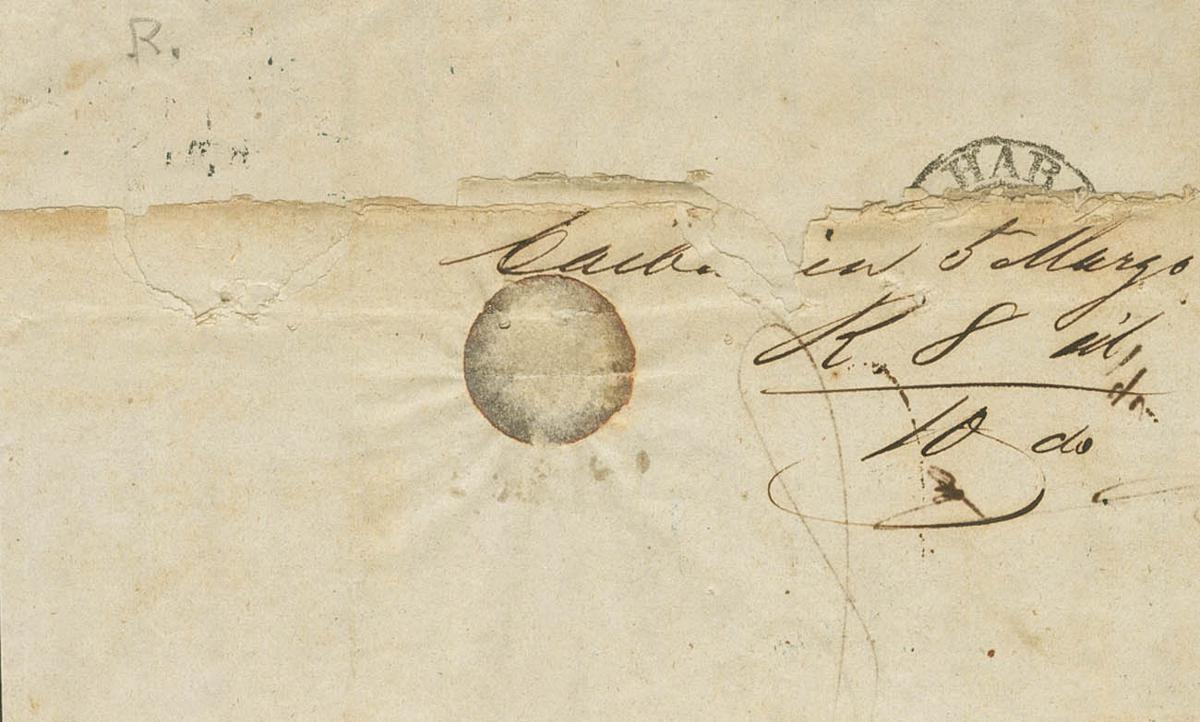 R.
HAR
Caiba ien 5 Marzo
R. 8 id,
10 do